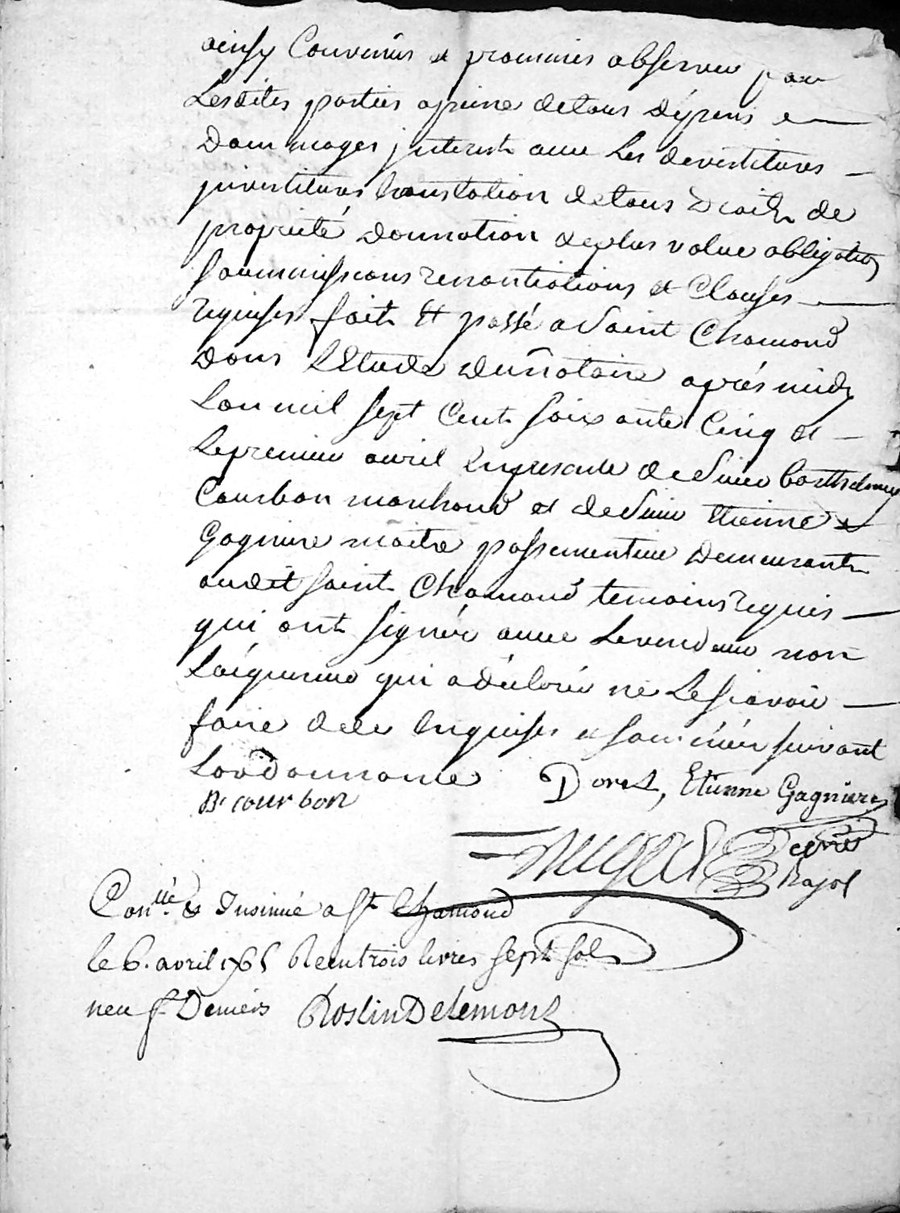 ainsy Convenus et promis observer par
Lesdites parties a peine de tous dépens et
Dommages jnterest avec les devestitures
jnvestitures translation de tous Droits de
proprieté Donnation de plus value obligation
Soumissions renontiations et Clauses
requises fait Et passé a Saint Chamond
Dans L'Etude du notaire aprés midy
Lan mil sept Cent soixante Cinq et
Le premier avril En presence de Sieur barthelemy
Courbon marchand et de Sieur Etienne
Gagniere maitre passementier Demeurants
audit Saint Chamond temoins requis
qui ont signés avec Le vendeur non
L'acquereur qui a declaré ne Le sçavoir
faire de ce Enquises et sommés suivant
Lordonnance Doret, Etienne Gagniere
Br courbon
Bajot
Con.llé & Insinué a St Chamond
le 6. avril 1765 Recu trois livres sept sols
neuf Deniers Roslin Delemont